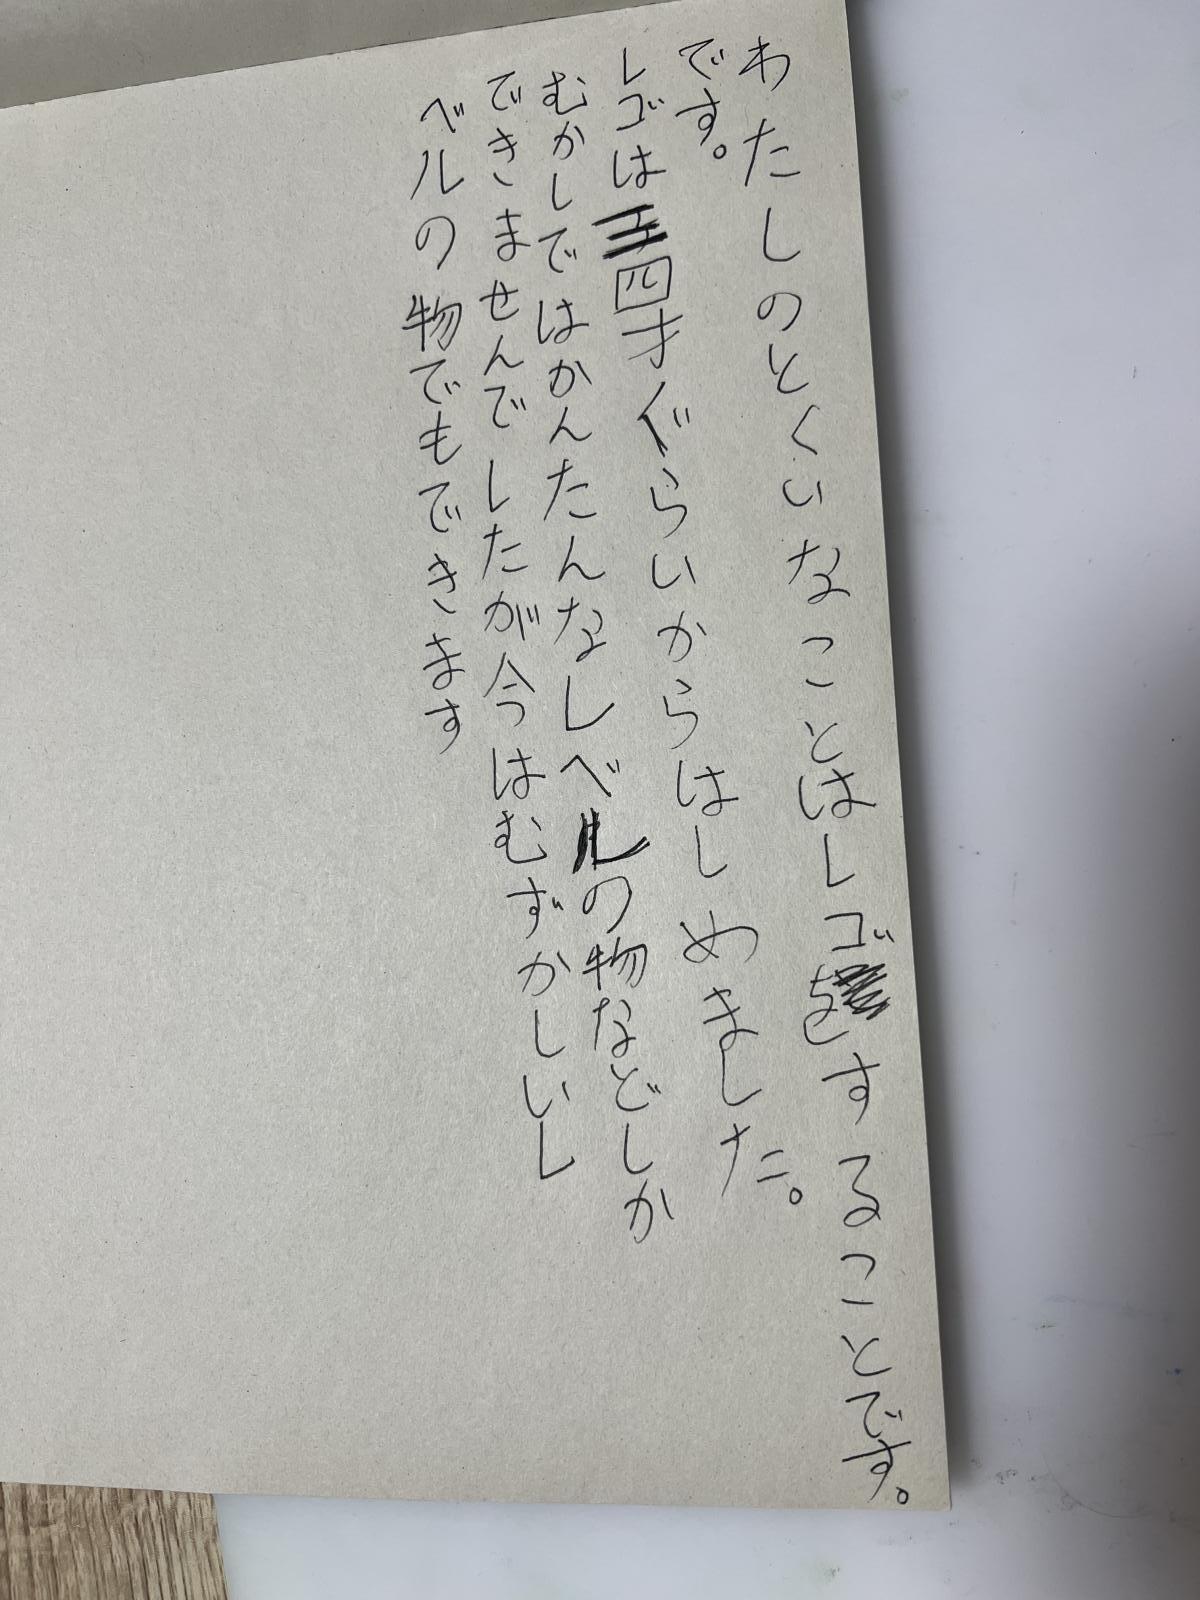 わたしのとくいなことはレゴをすることです。
です。
レゴは四才ぐらいからはしめました。
むかしではかんたんなレベルの物などしか
できませんでしたが今はむずかしいし
ベルの物でもできます